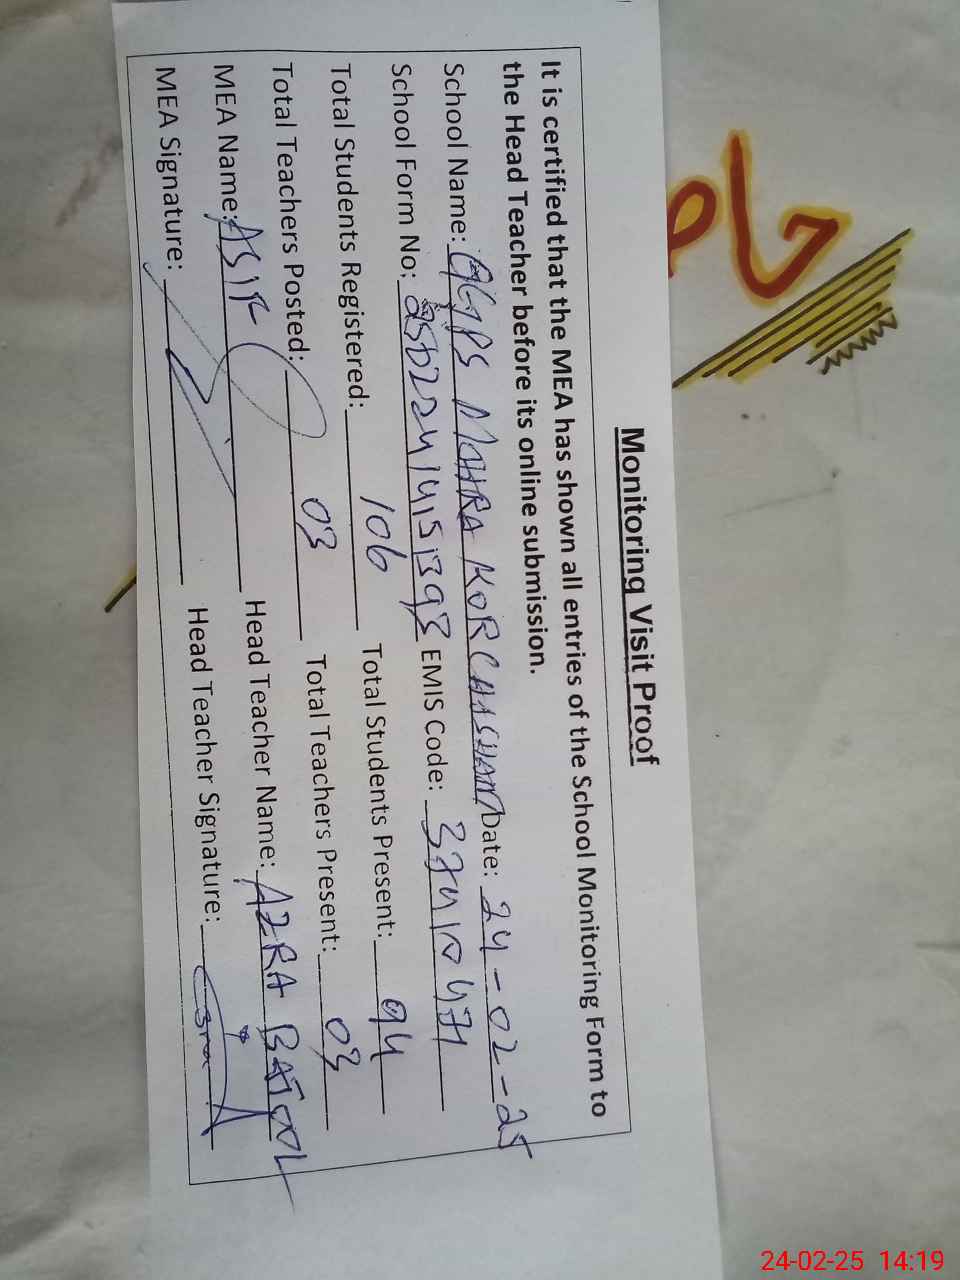 Monitoring Visit Proof
It is certified that the MEA has shown all entries of the School Monitoring Form to
the Head Teacher before its online submission.
School Name: GGPS MOHRA KOR CHASHAM Date: 24-02-25
School Form No: EMIS Code: 37410471
Total Students Registered: 106 Total Students Present: 94
Total Teachers Posted: 03 Total Teachers Present: 03
MEA Name: ASIF Head Teacher Name: AZRA BATOOL
MEA Signature: Head Teacher Signature:
24-02-25 14:19